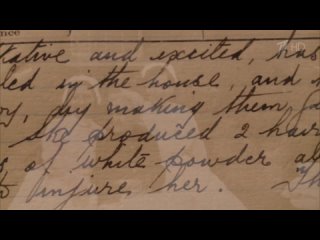 ence
tative and excited, has
led in the house, and
by making them
she produced 2 hair
s of white powder al
to injure her. Th